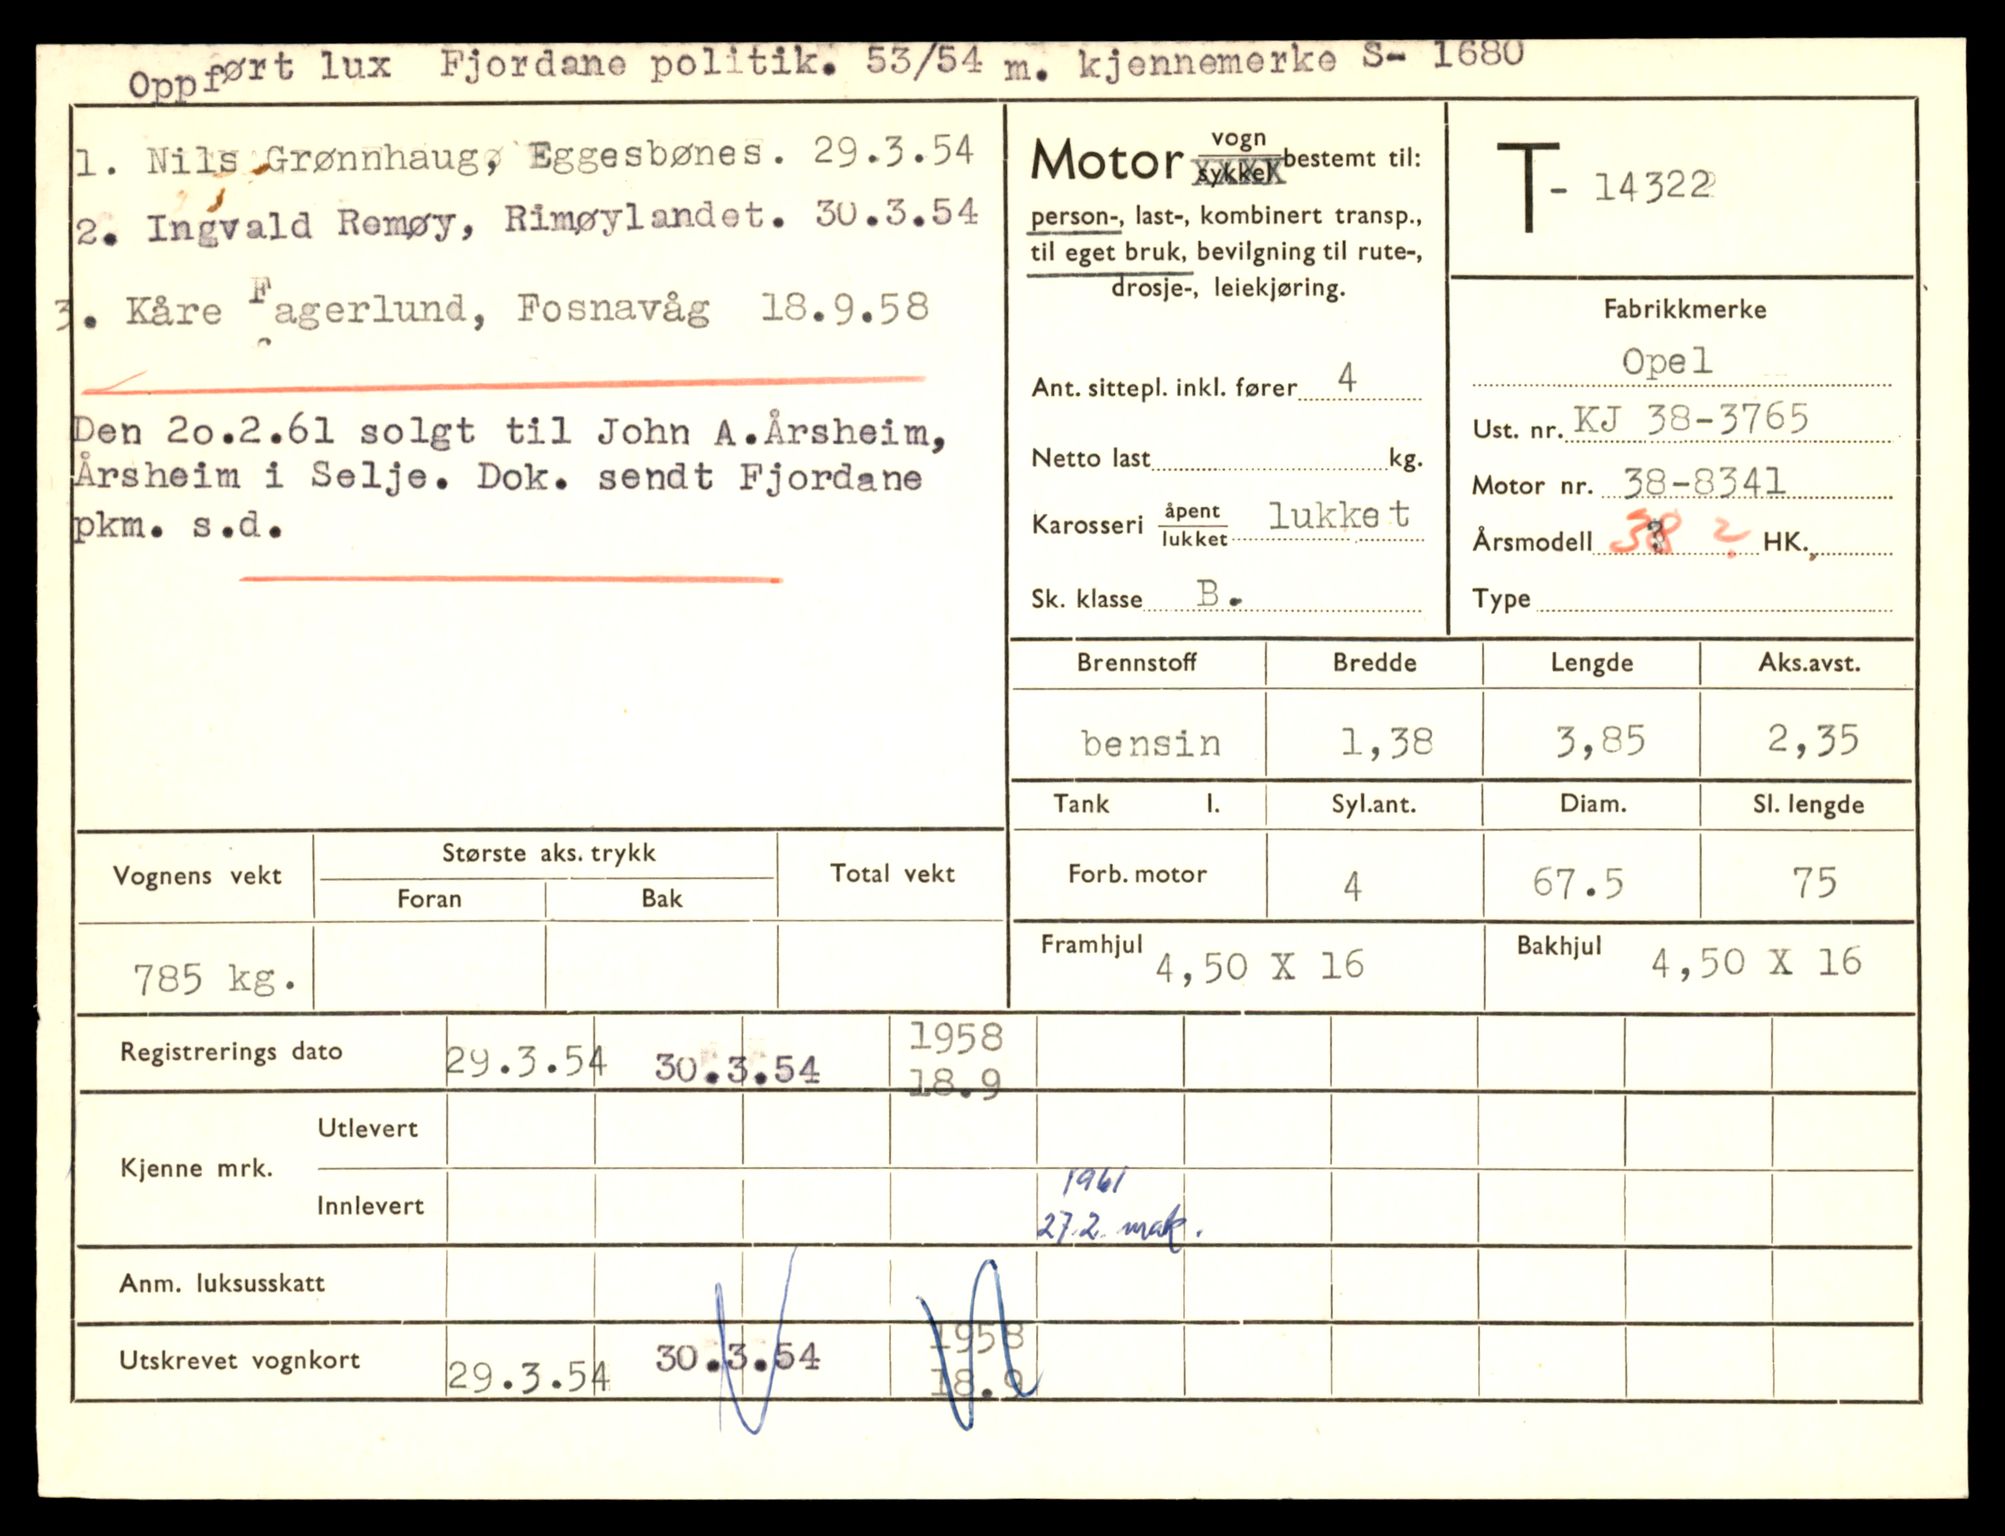 Oppført lux Fjordane politik. 53/54 m. kjennemerke S- 1680
1. Nils Grønnhaug, Eggesbønes. 29.3.54
2. Ingvald Remøy, Rimøylandet. 30.3.54
3. Kåre Fagerlund, Fosnavåg 18.9.58
Den 2o.2.61 solgt til John A.Årsheim,
Årsheim i Selje. Dok. sendt Fjordane
pkm. s.d.
Motor vogn sykkel bestemt til:
person-, last-, kombinert transp.,
til eget bruk, bevilgning til rute-,
drosje-, leiekjøring.
Ant. sittepl. inkl. fører 4
Netto last kg.
Karosseri åpent lukket lukket
Sk. klasse B.
T- 14322
Fabrikkmerke
Opel
Ust. nr. KJ 38-3765
Motor nr. 38-8341
Årsmodell 38 ? HK.
Type
Brennstoff Bredde Lengde Aks.avst.
bensin 1,38 3,85 2,35
Tank l. Syl.ant. Diam. Sl. lengde
Forb. motor 4 67.5 75
Framhjul 4,50 X 16 Bakhjul 4,50 X 16
Vognens vekt Største aks. trykk Total vekt
Foran Bak
785 kg.
Registrerings dato 29.3.54 30.3.54 1958
18.9
Kjenne mrk. Utlevert
Innlevert 1961
27.2. mak.
Anm. luksusskatt
Utskrevet vognkort 29.3.54 30.3.54 1958
18.9